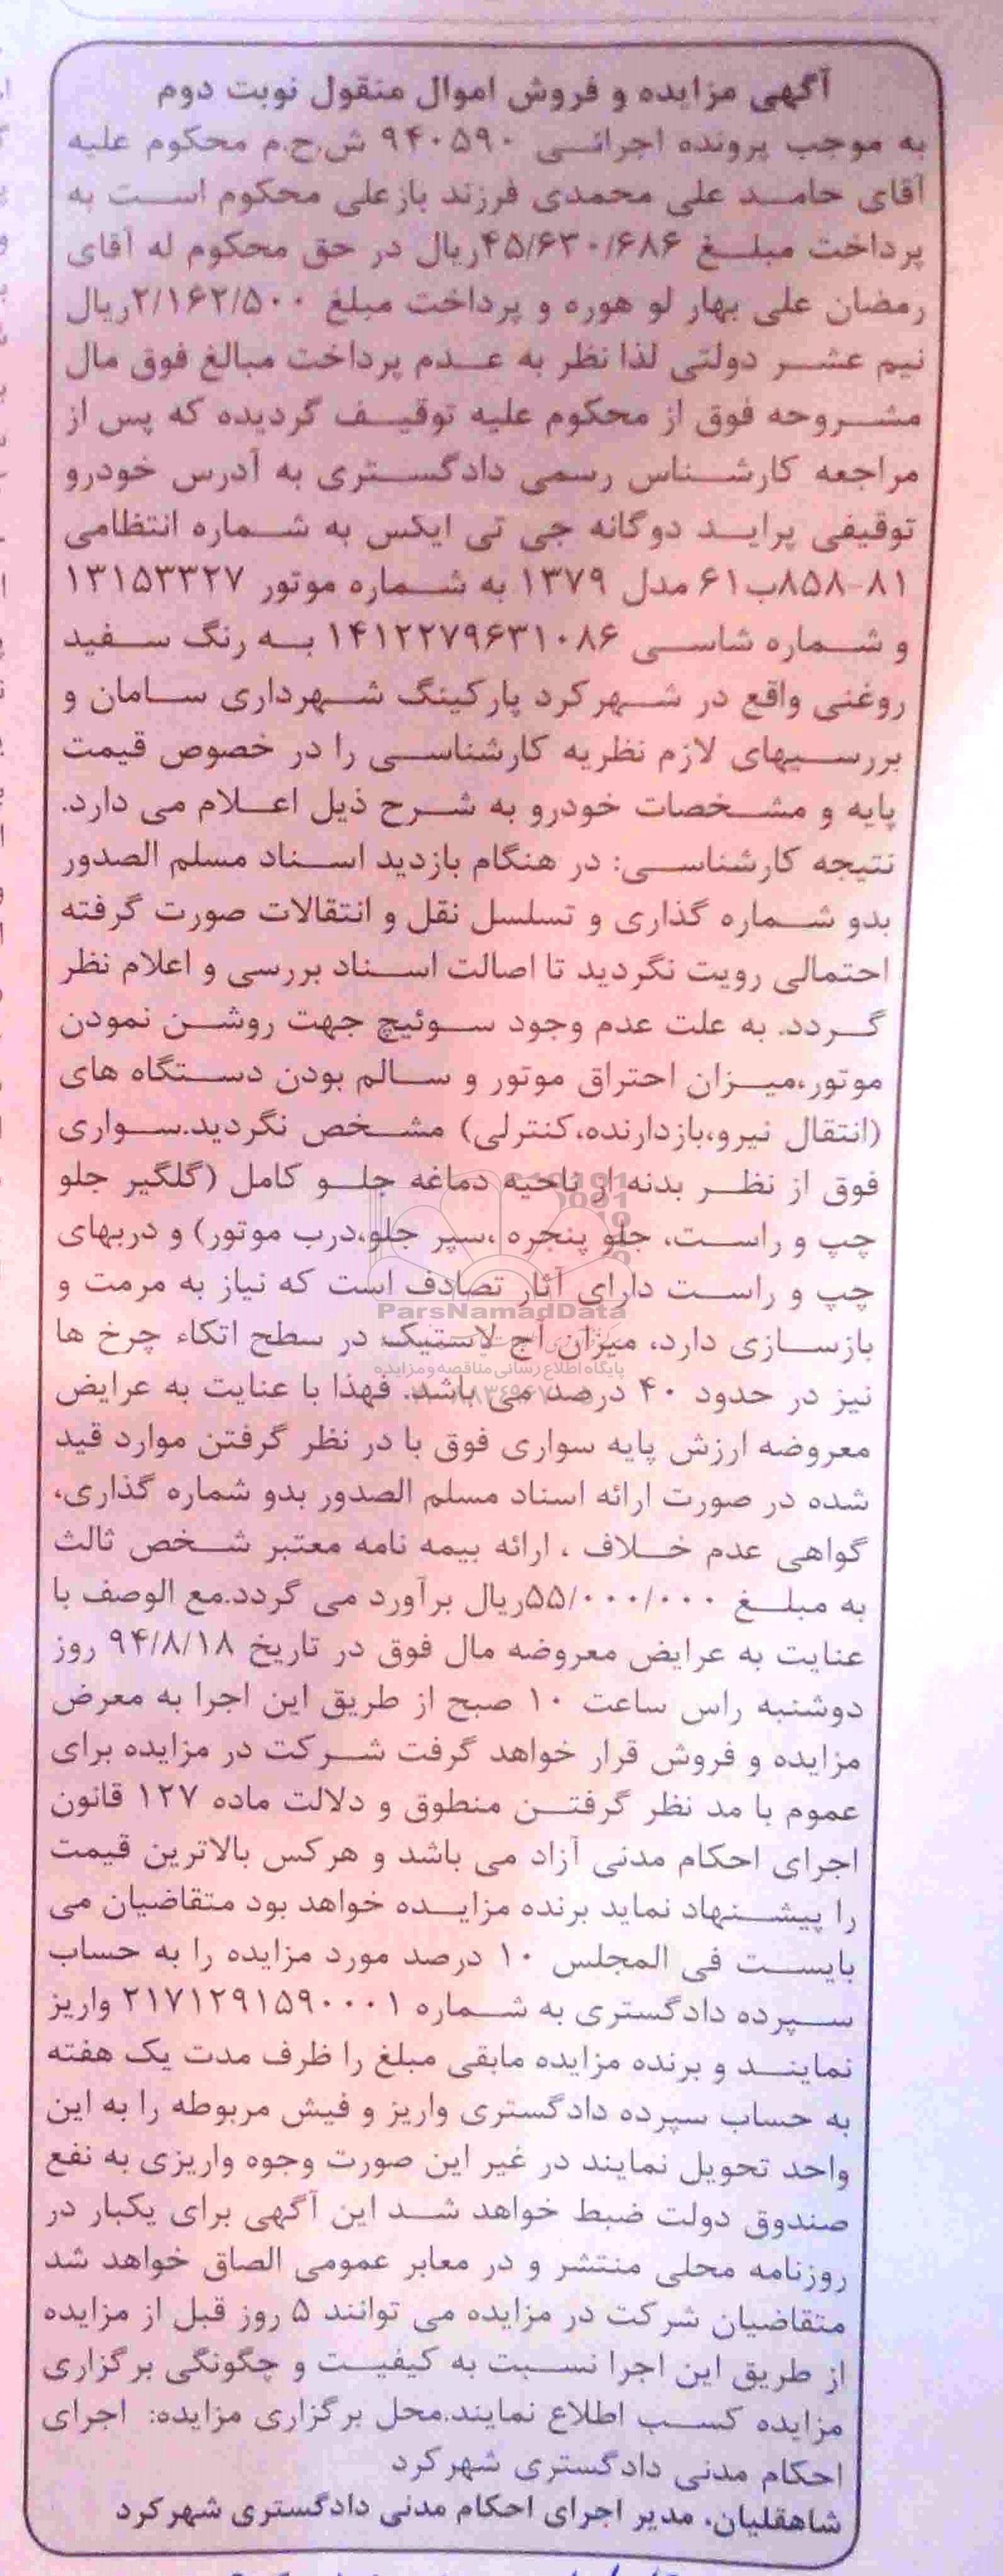 آگهی مزایده و فروش اموال منقول نوبت دوم
به موجب پرونده اجرائی ۹۴۰۵۹۰ ش.ح.م محکوم علیه
آقای حامد علی محمدی فرزند بازعلی محکوم است به
پرداخت مبلغ ۴۵/۶۳۰/۶۸۶ریال در حق محکوم له آقای
رمضان علی بهار لو هوره و پرداخت مبلغ ۲/۱۶۲/۵۰۰ریال
نیم عشر دولتی لذا نظر به عدم پرداخت مبالغ فوق مال
مشروحه فوق از محکوم علیه توقیف گردیده که پس از
مراجعه کارشناس رسمی دادگستری به آدرس خودرو
توقیفی پراید دوگانه جی تی ایکس به شماره انتظامی
۸۱-۸۵۸ب۶۱ مدل ۱۳۷۹ به شماره موتور ۱۳۱۵۳۳۲۷
و شماره شاسی ۱۴۱۲۲۷۹۶۳۱۰۸۶ به رنگ سفید
روغنی واقع در شهرکرد پارکینگ شهرداری سامان و
بررسیهای لازم نظریه کارشناسی را در خصوص قیمت
پایه و مشخصات خودرو به شرح ذیل اعلام می دارد.
نتیجه کارشناسی: در هنگام بازدید اسناد مسلم الصدور
بدو شماره گذاری و تسلسل نقل و انتقالات صورت گرفته
احتمالی رویت نگردید تا اصالت اسناد بررسی و اعلام نظر
گردد. به علت عدم وجود سوئیچ جهت روشن نمودن
موتور،میزان احتراق موتور و سالم بودن دستگاه های
(انتقال نیرو،بازدارنده،کنترلی) مشخص نگردید.سواری
فوق از نظر بدنه از ناحیه دماغه جلو کامل (گلگیر جلو
چپ و راست، جلو پنجره ،سپر جلو،درب موتور) و دربهای
چپ و راست دارای آثار تصادف است که نیاز به مرمت و
ParsNamadData
بازسازی دارد، میزان آج لاستیک در سطح اتکاء چرخ ها
پایگاه اطلاع رسانی مناقصه و مزایده
نیز در حدود ۴۰ درصد می باشد. فهذا با عنایت به عرایض
معروضه ارزش پایه سواری فوق با در نظر گرفتن موارد قید
شده در صورت ارائه اسناد مسلم الصدور بدو شماره گذاری،
گواهی عدم خلاف ، ارائه بیمه نامه معتبر شخص ثالث
به مبلغ ۵۵/۰۰۰/۰۰۰ریال برآورد می گردد.مع الوصف با
عنایت به عرایض معروضه مال فوق در تاریخ ۹۴/۸/۱۸ روز
دوشنبه راس ساعت ۱۰ صبح از طریق این اجرا به معرض
مزایده و فروش قرار خواهد گرفت شرکت در مزایده برای
عموم با مد نظر گرفتن منطوق و دلالت ماده ۱۲۷ قانون
اجرای احکام مدنی آزاد می باشد و هرکس بالاترین قیمت
را پیشنهاد نماید برنده مزایده خواهد بود متقاضیان می
بایست فی المجلس ۱۰ درصد مورد مزایده را به حساب
سپرده دادگستری به شماره ۲۱۷۱۲۹۱۵۹۰۰۰۱ واریز
نمایند و برنده مزایده مابقی مبلغ را ظرف مدت یک هفته
به حساب سپرده دادگستری واریز و فیش مربوطه را به این
واحد تحویل نمایند در غیر این صورت وجوه واریزی به نفع
صندوق دولت ضبط خواهد شد این آگهی برای یکبار در
روزنامه محلی منتشر و در معابر عمومی الصاق خواهد شد
متقاضیان شرکت در مزایده می توانند ۵ روز قبل از مزایده
از طریق این اجرا نسبت به کیفیت و چگونگی برگزاری
مزایده کسب اطلاع نمایند.محل برگزاری مزایده: اجرای
احکام مدنی دادگستری شهرکرد
شاهقلیان، مدیر اجرای احکام مدنی دادگستری شهرکرد